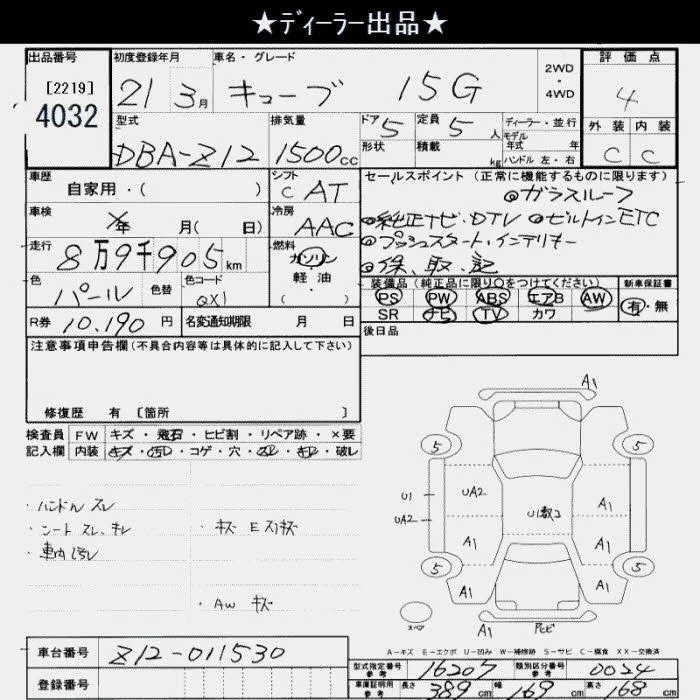 ★ディーラー出品★
出品番号 初度登録年月 車名・グレード 2WD・4WD 評価点
[2219] 4032 21 3月 キューブ 15G 4
型式 排気量 ドア 定員 ディーラー・並行 外装 内装
DBA-Z12 1500cc 5 5人 モデル年式 年 C C
形状 積載 kg ハンドル 左・右
車歴 シフト セールスポイント(正常に機能するものに限ります)
自家用・( ) C AT ◎ガラスルーフ
車検 冷房 ◎純正ナビ・DTV ◎ビルトインETC
年 月( 日) AAC ◎プッシュスタート・インテリキー
走行 燃料 ◎保、取、記
8万9千905km ガソリン 軽・油 ・( )
装備品(純正品に限り○をつけてください) 新車保証書
色 色替 色コード PS PW ABS エアB AW 有・無
パール QX1 SR ナビ TV カワ
R券 10,190円 名変通知期限 月 日 後日品
注意事項申告欄(不具合内容等は具体的に記入して下さい)
修復歴 有 〔箇所 〕
検査員 FW キズ・飛石・ヒビ割・リペア跡・×要
記入欄 内装 キズ・汚レ・コゲ・穴・スレ・キレ・破レ
・ハンドル スレ
・シート スレ、キレ ・キズ Eスリキズ
・車内汚レ
・AW キズ
A1
5 5
U1 UA2 A1
UA2 U1数コ
A1 A1
5 5
A1 A1
スペア A1
A-キズ E-エクボ U-凹み W-補修跡 S-サビ C-腐食 XX-交換済
車台番号 Z12-011530
登録番号
型式指定番号 参考 16207 類別区分番号 参考 0024
車庫証明用 参考 長さ 389cm 幅 169cm 高さ 168cm